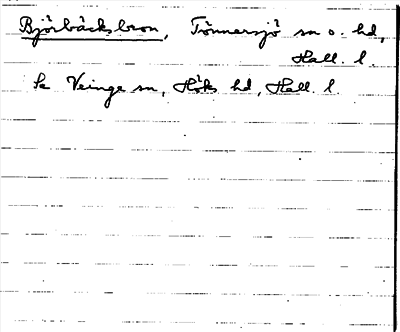 Björbäcksbron, Tönnersjö sn o. hd,
Hall. l.
Se Veinge sn, Höks hd, Hall. l.